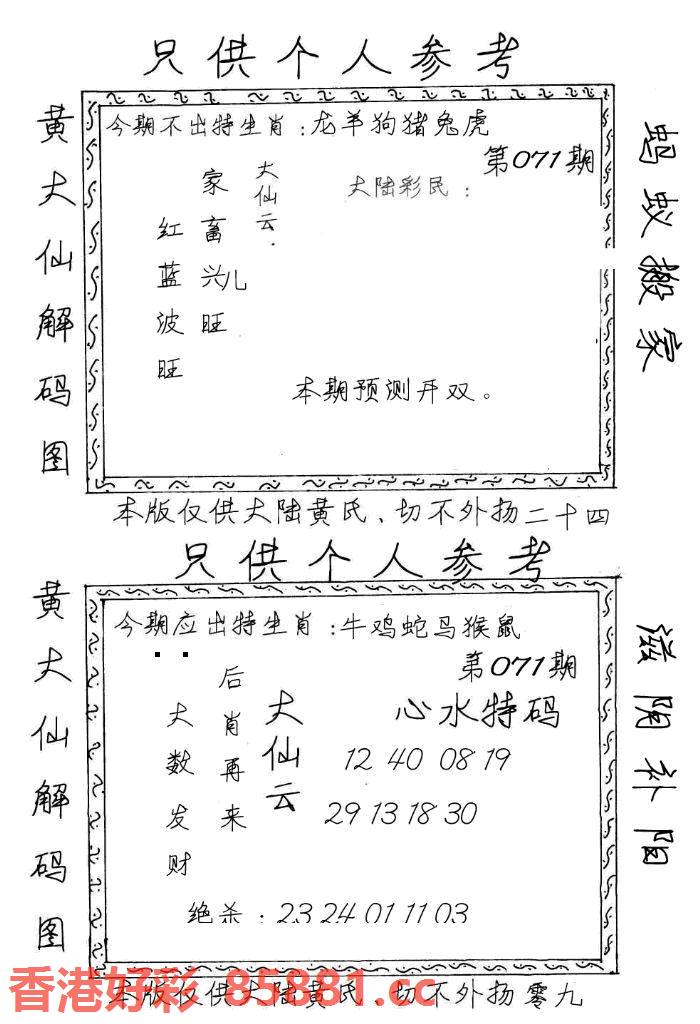 只供个人参考
黄大仙解码图
今期不出特生肖：龙羊狗猪兔虎
第071期
大仙云：
家畜兴旺儿
红蓝波旺
大陆彩民：
本期预测开双。
蚂蚁搬家
本版仅供大陆黄氏、切不外扬二十四
只供个人参考
黄大仙解码图
今期应出特生肖：牛鸡蛇马猴鼠
第071期
大仙云
后肖再来
大数发财
心水特码
12 40 08 19
29 13 18 30
绝杀：23 24 01 11 03
滋阴补阳
本版仅供大陆黄氏、切不外扬零九
香港好彩 85881.cc